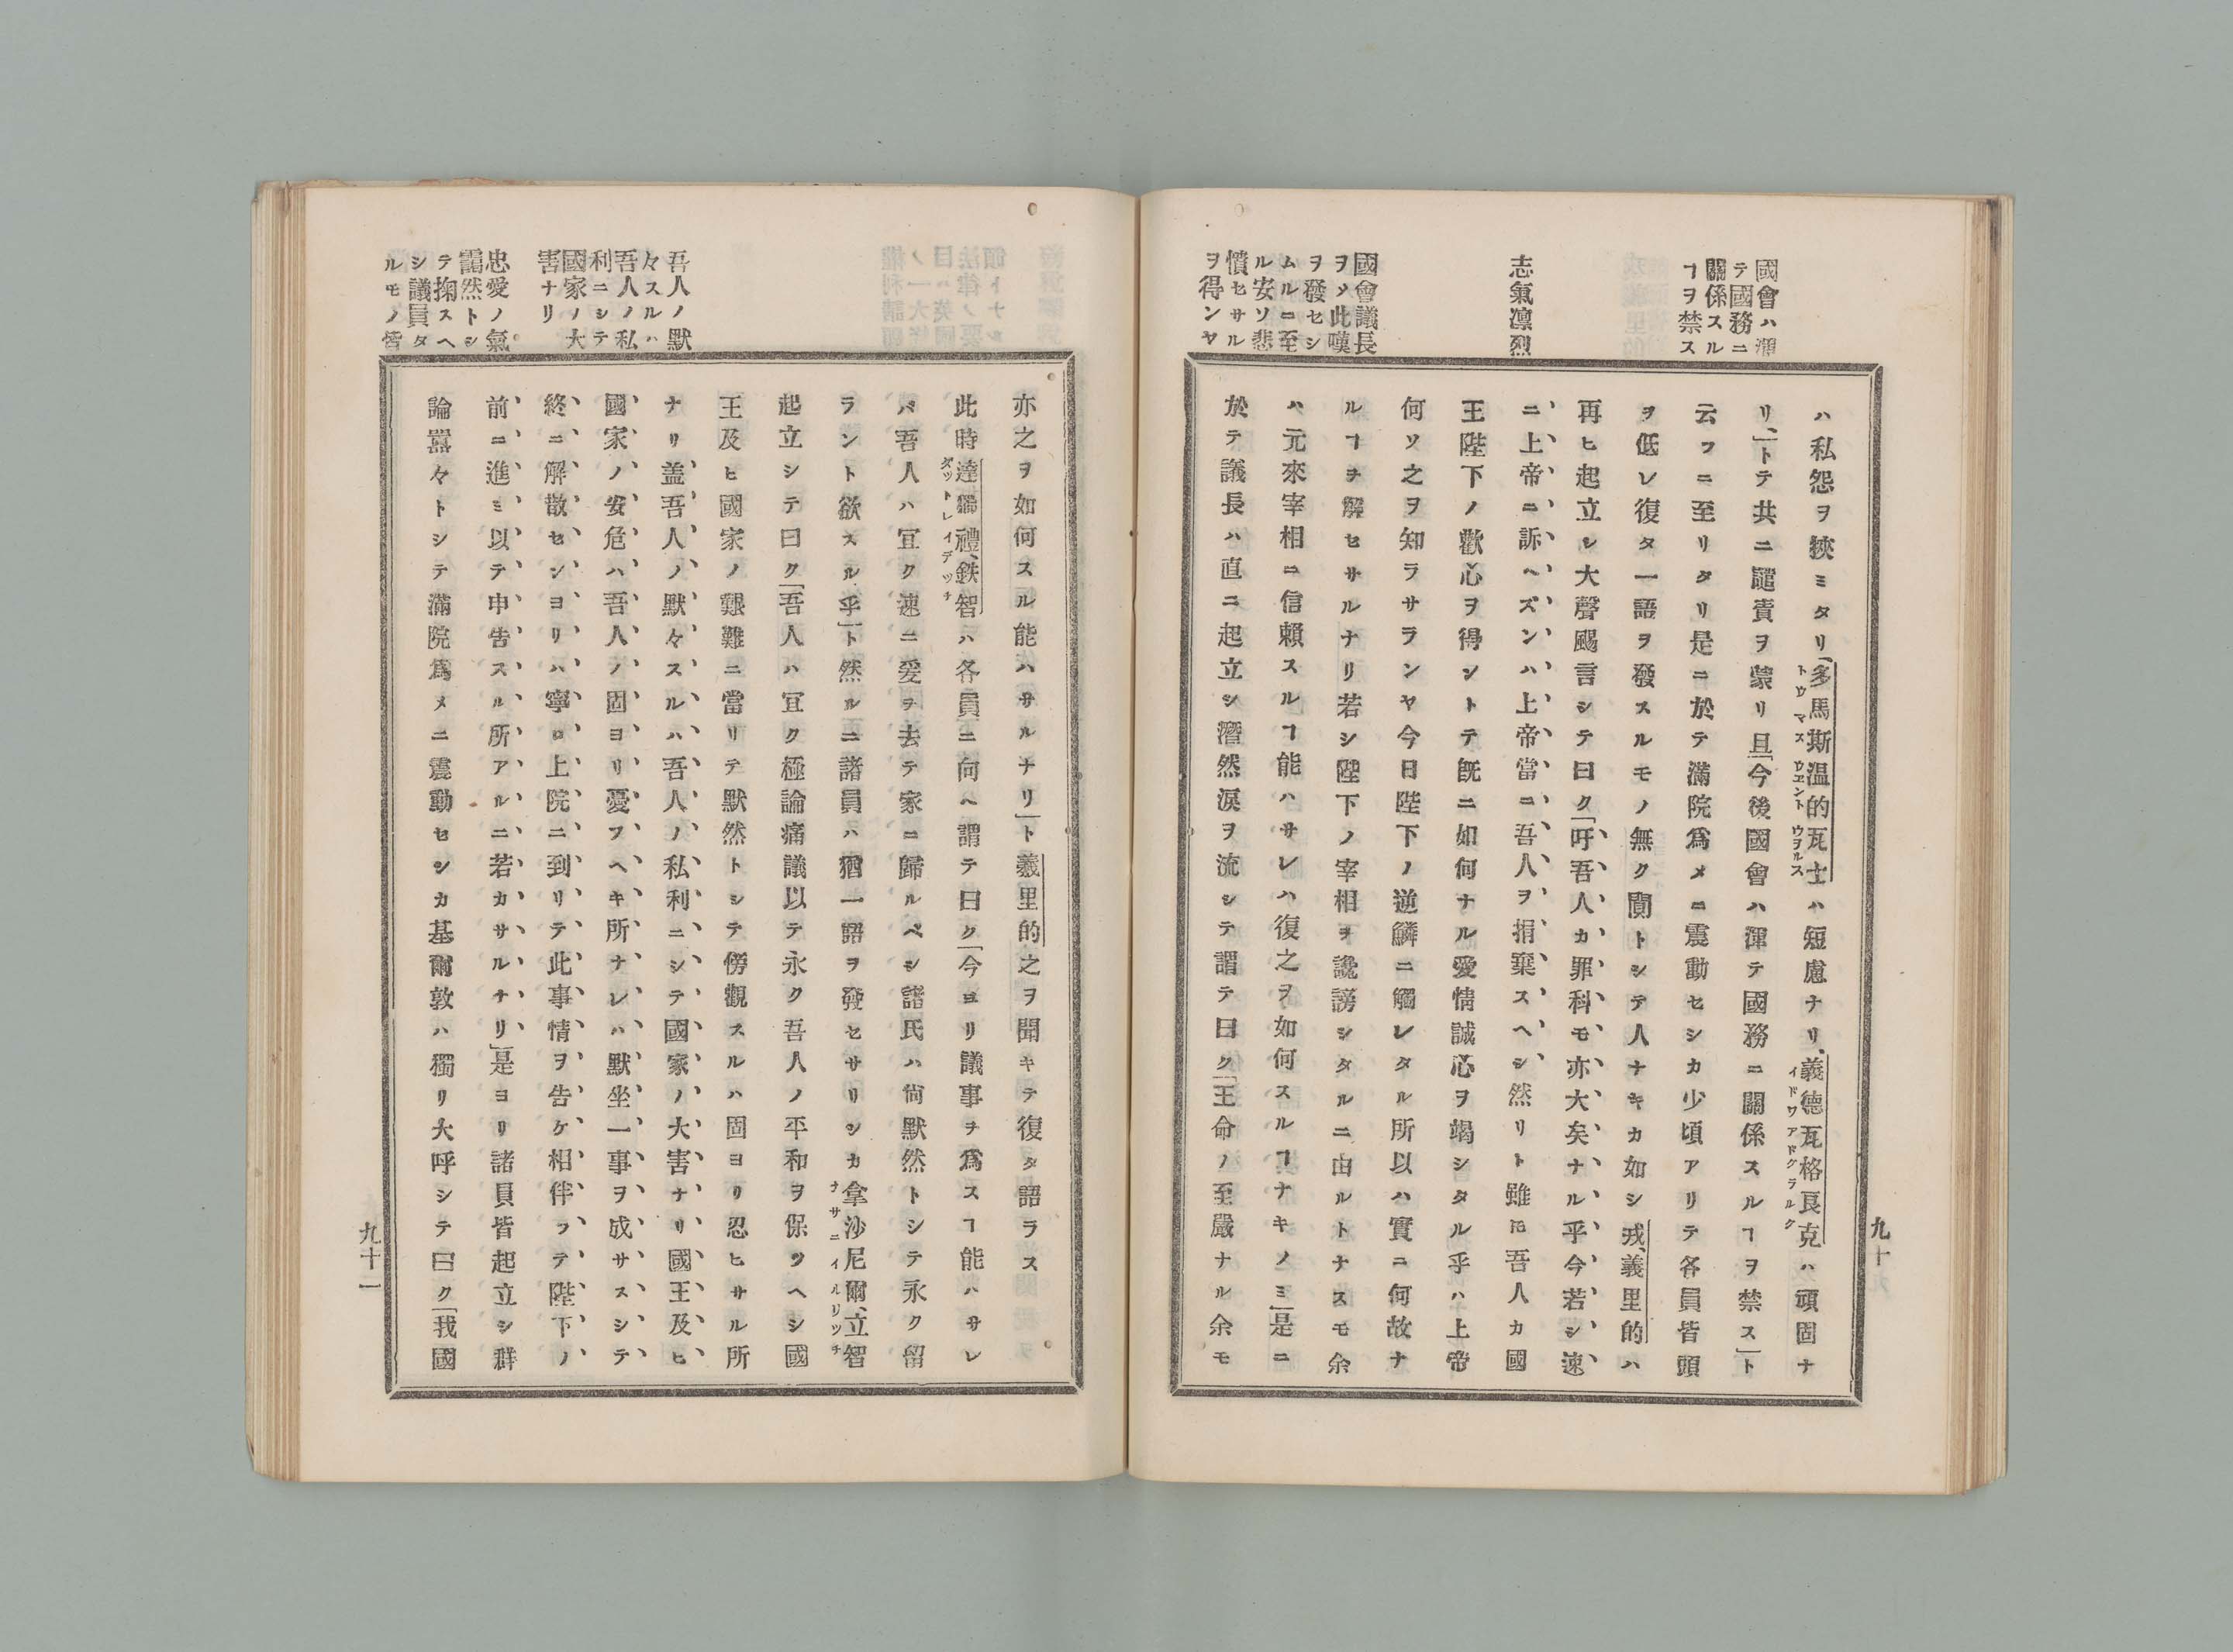 國會ハ渾
テ國務ニ
關係スル
ヿヲ禁ス
志氣凛烈
國會議長
ヲメ此嘆
ヲ發セシ
ムルニ至
ル安ソ悲
憤セサル
ヲ得ンヤ
ハ私怨ヲ挾ミタリ「多馬斯温的瓦士ハ短慮ナリ、義德瓦格良克ハ頑固ナ
トウマス ウエント ウヲルス
イドワアドクラルク
リ、」トテ共ニ譴責ヲ蒙リ且「今後國會ハ渾テ國務ニ關係スルヿヲ禁ス」ト
云フニ至リタリ是ニ於テ滿院爲メニ震動セシカ少頃アリテ各員皆頭
ヲ低レ復タ一語ヲ發スルモノ無ク闃トシテ人ナキカ如シ戎、義里的ハ
再ヒ起立シ大聲颺言シテ曰ク「吁吾人カ罪科モ亦大矣ナル乎今若シ速
ニ上帝ニ訴ヘズンハ上帝當ニ吾人ヲ捐棄スヘシ然リト雖𪜈吾人カ國
王陛下ノ歡心ヲ得ントテ既ニ如何ナル愛情誠心ヲ竭シタル乎ハ上帝
何ソ之ヲ知ラサランヤ今日陛下ノ逆鱗ニ觸レタル所以ハ實ニ何故ナ
ルヿヲ解セサルナリ若シ陛下ノ宰相ヲ讒謗シタルニ由ルトナスモ余
ハ元來宰相ニ信賴スルヿ能ハサレハ復之ヲ如何スルヿナキノミ」是ニ
於テ議長ハ直ニ起立シ潸然涙ヲ流シテ謂テ曰ク「王命ノ至嚴ナル余モ
九十
吾人ノ默
々スルハ
吾人ノ私
利ニシテ
國家ノ大
害ナリ
忠愛ノ氣
靄然トシ
テ掬スヘ
シ議員タ
ルモノ皆
亦之ヲ如何スル能ハサルナリ」ト義里的之ヲ聞キテ復タ語ラス
此時達獨禮、鉄智ハ各員ニ向ヘ謂テ曰ク「今ヨリ議事ヲ爲スヿ能ハサレ
ダットレイデッチ
バ吾人ハ宜ク速ニ爰ヲ去テ家ニ歸ルベシ諸氏ハ尙默然トシテ永ク留
ラント欲スル乎」ト然ルニ諸員ハ猶一語ヲ發セサリシカ拿沙尼爾、立智
ナサニイルリッチ
起立シテ曰ク「吾人ハ宜ク極論痛議以テ永ク吾人ノ平和ヲ保ツヘシ國
王及ヒ國家ノ艱難ニ當リテ默然トシテ傍觀スルハ固ヨリ忍ヒサル所
ナリ蓋吾人ノ默々スルハ吾人ノ私利ニシテ國家ノ大害ナリ國王及ヒ
國家ノ安危ハ吾人ノ固ヨリ憂フヘキ所ナレハ默坐一事ヲ成サスシテ
終ニ解散センヨリハ寧ロ上院ニ到リテ此事情ヲ告ケ相伴フテ陛下ノ
前ニ進ミ以テ申告スル所アルニ若カサルナリ」是ヨリ諸員皆起立シ群
論囂々トシテ滿院爲メニ震動セシカ基爾敦ハ獨リ大呼シテ曰ク「我國
九十一